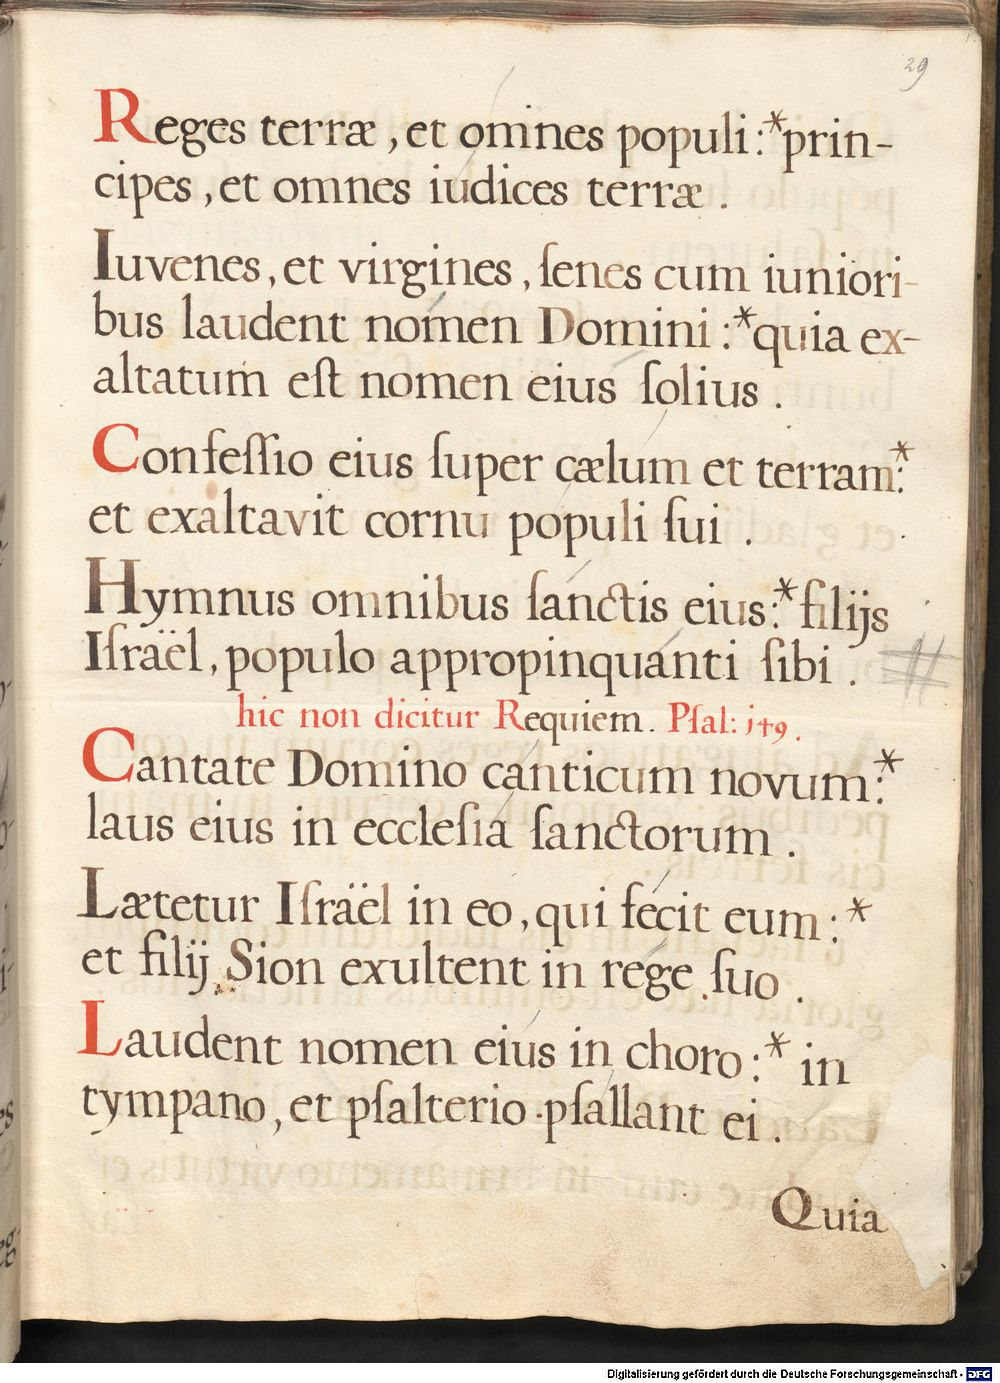 29
Reges terræ, et omnes populi:*prin-
cipes, et omnes iudices terræ.
Iuvenes, et virgines, ſenes cum iuniori-
bus laudent nomen Domini:*quia ex-
altatum eſt nomen eius ſolius.
Confeſſio eius ſuper cælum et terram:*
et exaltavit cornu populi ſui.
Hymnus omnibus ſanctis eius:*filijs
Iſraël, populo appropinquanti ſibi.
hic non dicitur Requiem. Pſal: 149.
Cantate Domino canticum novum:*
laus eius in eccleſia ſanctorum.
Lætetur Iſraël in eo, qui fecit eum:*
et filij Sion exultent in rege ſuo.
Laudent nomen eius in choro:* in
tympano, et pſalterio pſallant ei.
Quia
Digitalisierung gefördert durch die Deutsche Forschungsgemeinschaft - DFG